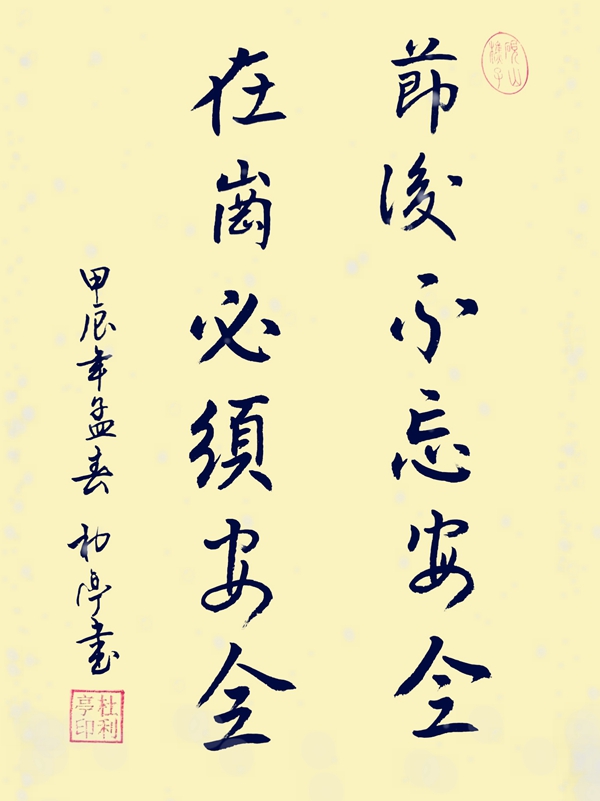 莭後不忘安全
在崗必須安全
甲辰年孟春 利亭書
杜利亭印